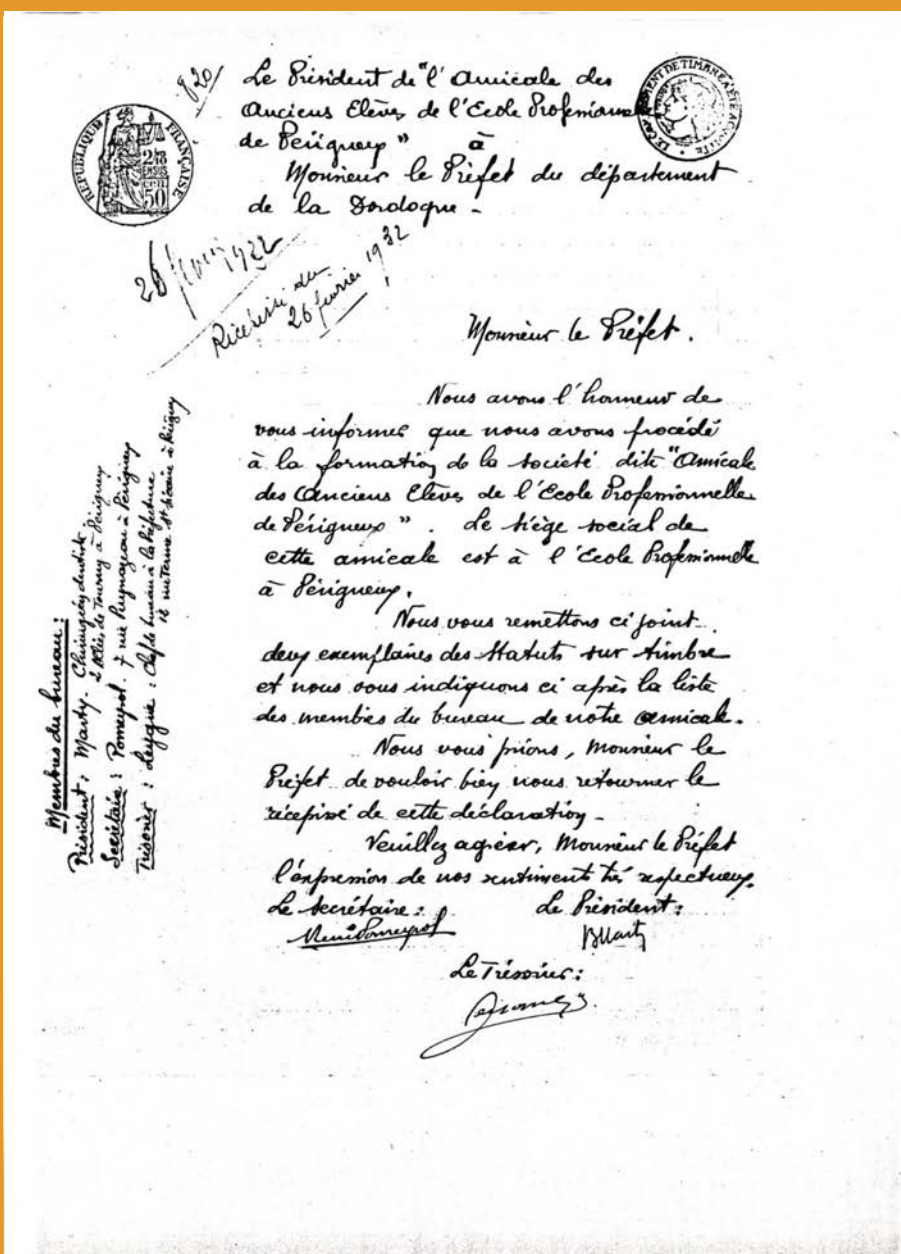 820
Le Président de "l'Amicale des
Anciens Elèves de l'Ecole Professionnelle
de Périgueux" à
Monsieur le Préfet du département
de la Dordogne -
RÉPUBLIQUE FRANÇAISE
50
26 février 1932
Récépissé du
26 février 1932
Monsieur le Préfet.
Nous avons l'honneur de
vous informer que nous avons procédé
à la formation de la société dite "Amicale
des Anciens Elèves de l'Ecole Professionnelle
de Périgueux". Le siège social de
cette amicale est à l'Ecole Professionnelle
à Périgueux.
Nous vous remettons ci joint
deux exemplaires des Statuts sur timbre
et nous vous indiquons ci après la liste
des membres du bureau de notre amicale.
Nous vous prions, Monsieur le
Préfet de vouloir bien nous retourner le
récépissé de cette déclaration -
Veuillez agréer, Monsieur le Préfet
l'expression de nos sentiments très respectueux.
Le secrétaire : Le Président :
René Pomeyrol BMarty
Le Trésorier :
Membres du bureau :
Président : Marty - Chirurgien dentiste
2 Allées de Tourny à Périgueux
Secrétaire : Pomeyrol. 7 rue à Périgueux
Trésorier : Leygue : Chef de bureau à la Préfecture
à Périgueux